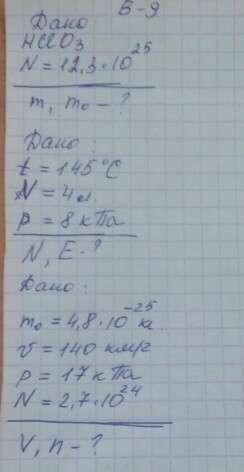 Б-9
Дано
HClO₃
N = 12,3·10²⁵
m, m₀ - ?
Дано:
t = 145°C
V = 4 л.
p = 8 кПа
N, E - ?
Дано:
m₀ = 4,8·10⁻²⁵ кг.
v = 140 км/г
p = 17 кПа
N = 2,7·10²⁴
V, n - ?